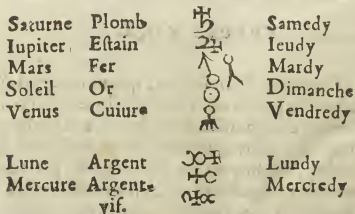 Saturne Plomb ♄ Samedy
Iupiter Eſtain ♃ Ieudy
Mars Fer ♂ Mardy
Soleil Or ☉ Dimanche
Venus Cuiure ♀ Vendredy
Lune Argent Lundy
Mercure Argent Mercredy
vif.